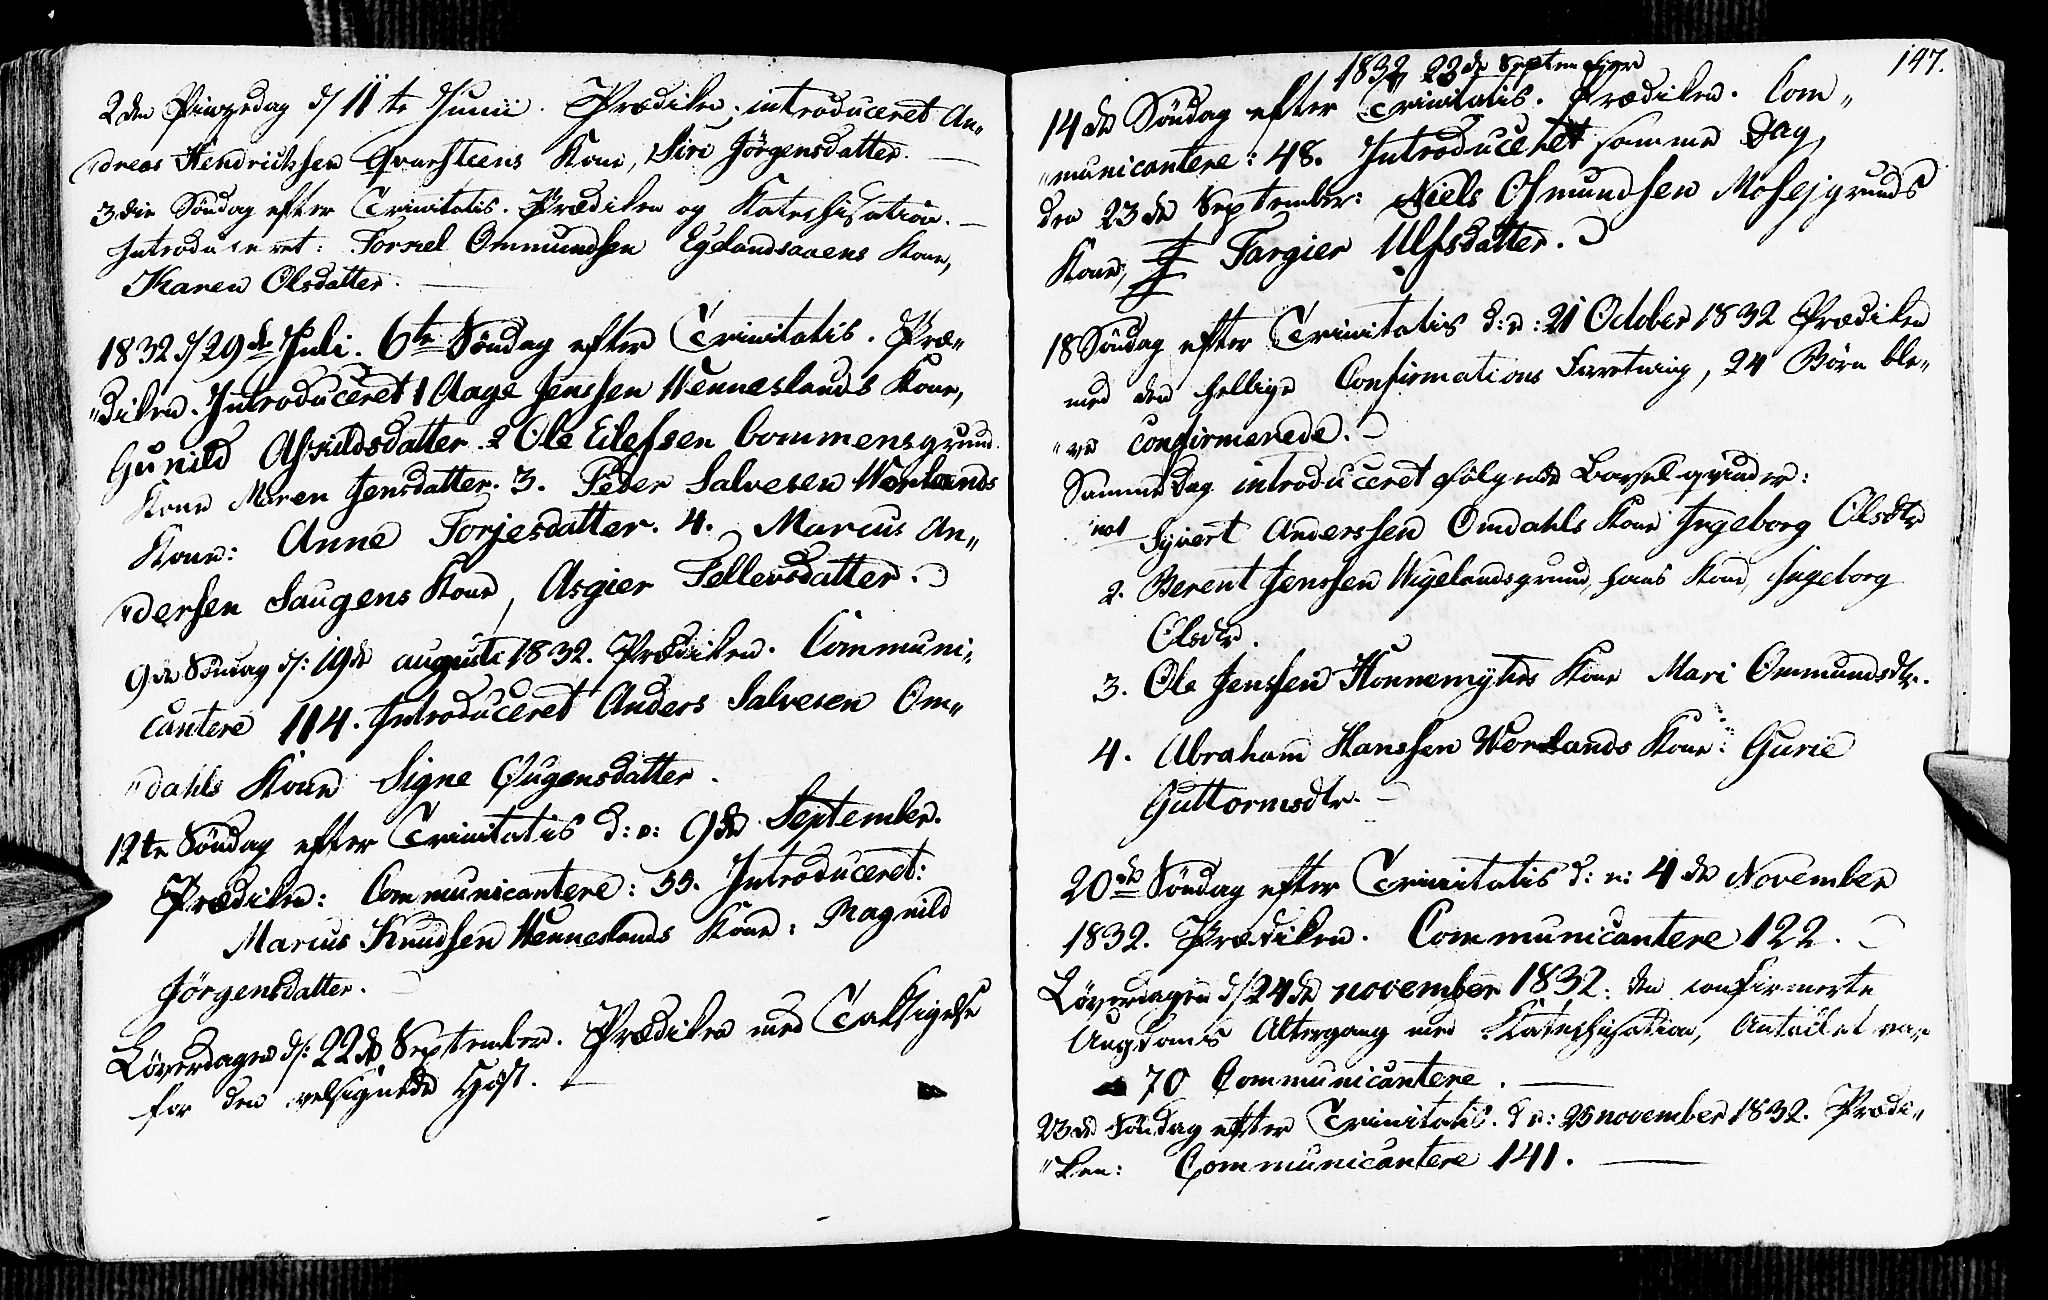 2den Pinzedag d/ 11te Junii. Prædiken; introduceret An„
„dreas Hendrichsen Qvarsteens Kone, Siri Jörgensdatter. —
3die Söndag efter Trinitatis. Prædiken og Katechisation. —
Introduceret: Torkel Ommundsen Egelandsaaens Kone,
Karen Olsdatter. —
1832 d/ 29de Juli. 6te Söndag efter Trinitatis. Præ„
„diken. Introduceret 1 Aage Jenssen Wenneslands Kone,
Gunild Askildsdatter. 2 Ole Eilefsen Commensgrund
Kone Maren Jensdatter. 3. Peder Salvesen Werlands
Kone: Anne Torjesdatter. 4. Marcus An„
„dersen Saugens Kone, Asgier Tellevsdatter.
9de Söndag d: 19de augusti 1832. Prædiken. Communi„
cantere 114. Introduceret Anders Salvesen Om„
„dahls Kone Signe Öugensdatter.
12te Söndag efter Trinitatis d: e: 9de September.
Prædiken: Communicantere: 55. Introduceret:
Marcus Knudsen Wenneslands Kone: Ragnild
Jörgensdatter.
Löverdagen d: 22de September. Prædiken med Taksigelse
for den velsignede Höst. —
147.
1832 23de September
14de Söndag efter Trinitatis. Prædiken. Com„
„municantere: 48. Introduceret samme Dag,
den 23de September: Niels Osmundsen Mosejgrunds
Kone, Targier Ulfsdatter.
18 Söndag efter Trinitatis d: e: 21 October 1832 Prædiken
med den hellige Confirmations Forretning, 24 Börn ble„
„ve confirmerede.
Samme Dag introduceret fölgende Barselqvinder:
no1 Syvert Anderssen Omdahls Kone Ingeborg Olsdtr
2. Berent Jenssen Wigelandsgrund, hans Kone, Ingeborg
Olsdtr.
3. Ole Jenssen Honnemyhrs Kone Mari Ommundsdtr.
4. Abraham Hanssen Werlands Kone: Gurie
Guttormsdtr. —
20de Söndag efter Trinitatis d: e: 4de November
1832. Prædiken. Communicantere 122.
Löverdagen d/ 24de november 1832: den confirmerte
Ungdoms Altergang med Katechisation, Antallet var
70 Communicantere. —
23de Söndag efter Trinitatis. d e: 25 november 1832. Prædi„
„ken: Communicantere 141. —